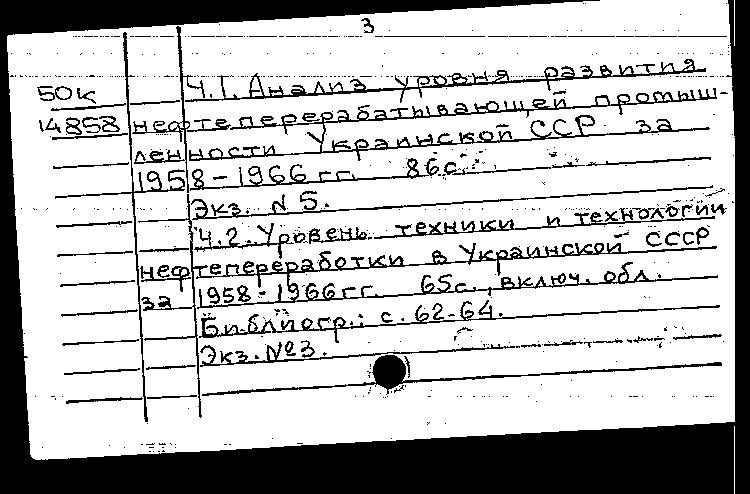 3
50к Ч.1. Анализ уровня развития
14858 нефтеперерабатывающей промыш-
ленности Украинской ССР за
1958-1966 гг. 86с.
Экз. N 5.
Ч.2. Уровень техники и технологии
нефтепереработки в Украинской СССР
за 1958-1966 гг. 65с., включ. обл.
Библиогр.: с. 62-64.
Экз. №3.